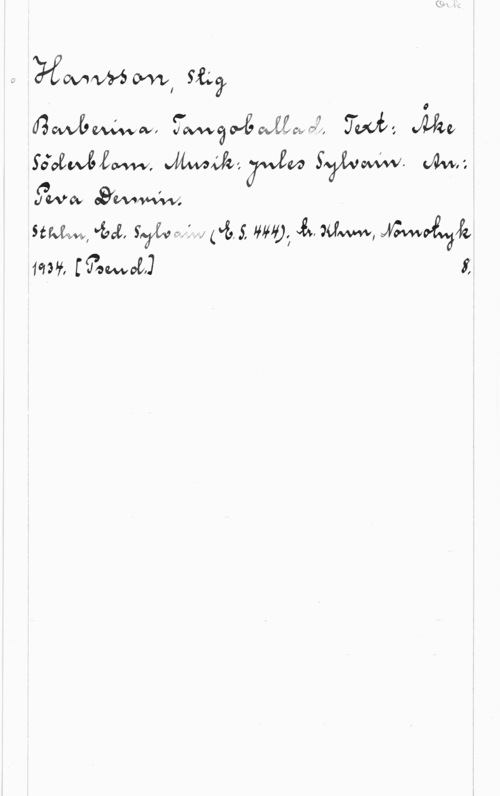 Ork
Hansson, Stig
Barberina. Tangoballad. Text: Åke
Söderblom. Musik: Jules Sylvain. Arr.:
Peva Derwin.
Sthlm, Ed. Sylvain (E. S. 444); tr. Khvn, Nornotryk
1934. [Pseud.] 8.